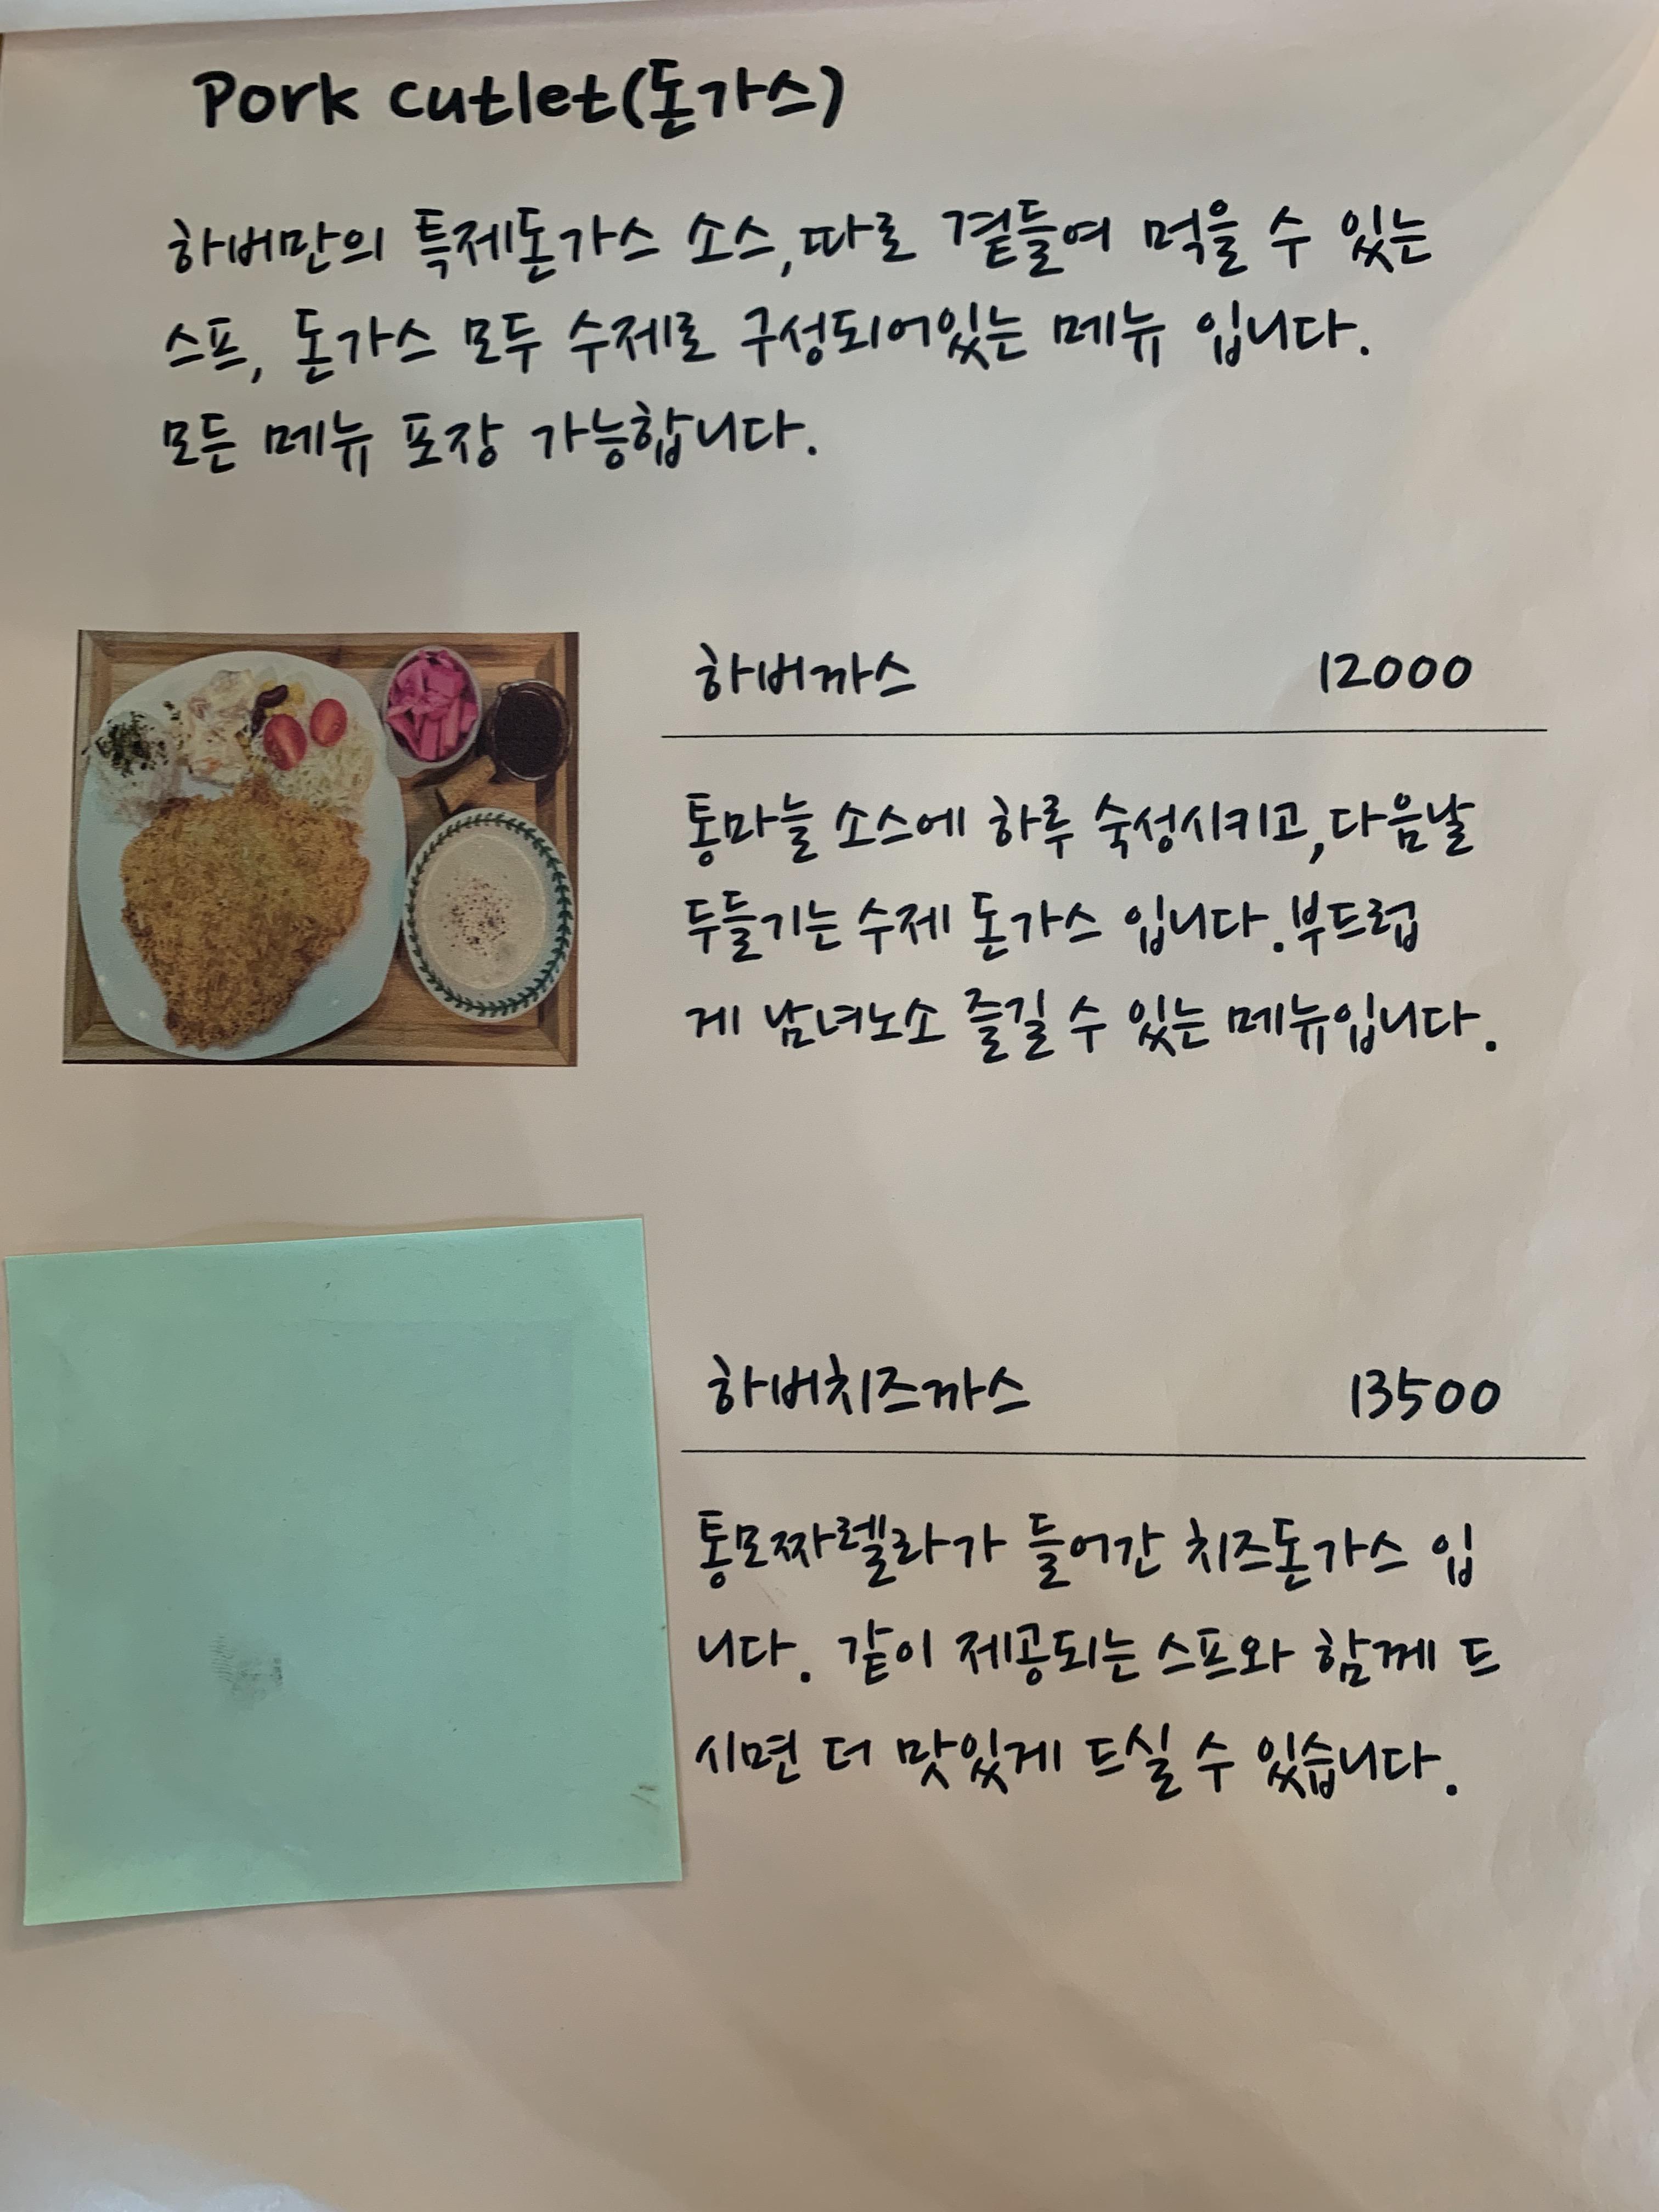 Pork cutlet(돈가스)
하버만의 특제돈가스 소스,따로 곁들여 먹을 수 있는
스프, 돈가스 모두 수제로 구성되어있는 메뉴 입니다.
모든 메뉴 포장 가능합니다.
하버까스 12000
통마늘 소스에 하루 숙성시키고,다음날
두들기는 수제 돈가스 입니다.부드럽
게 남녀노소 즐길 수 있는 메뉴입니다.
하버치즈까스 13500
통모짜렐라가 들어간 치즈돈가스 입
니다. 같이 제공되는 스프와 함께 드
시면 더 맛있게 드실 수 있습니다.